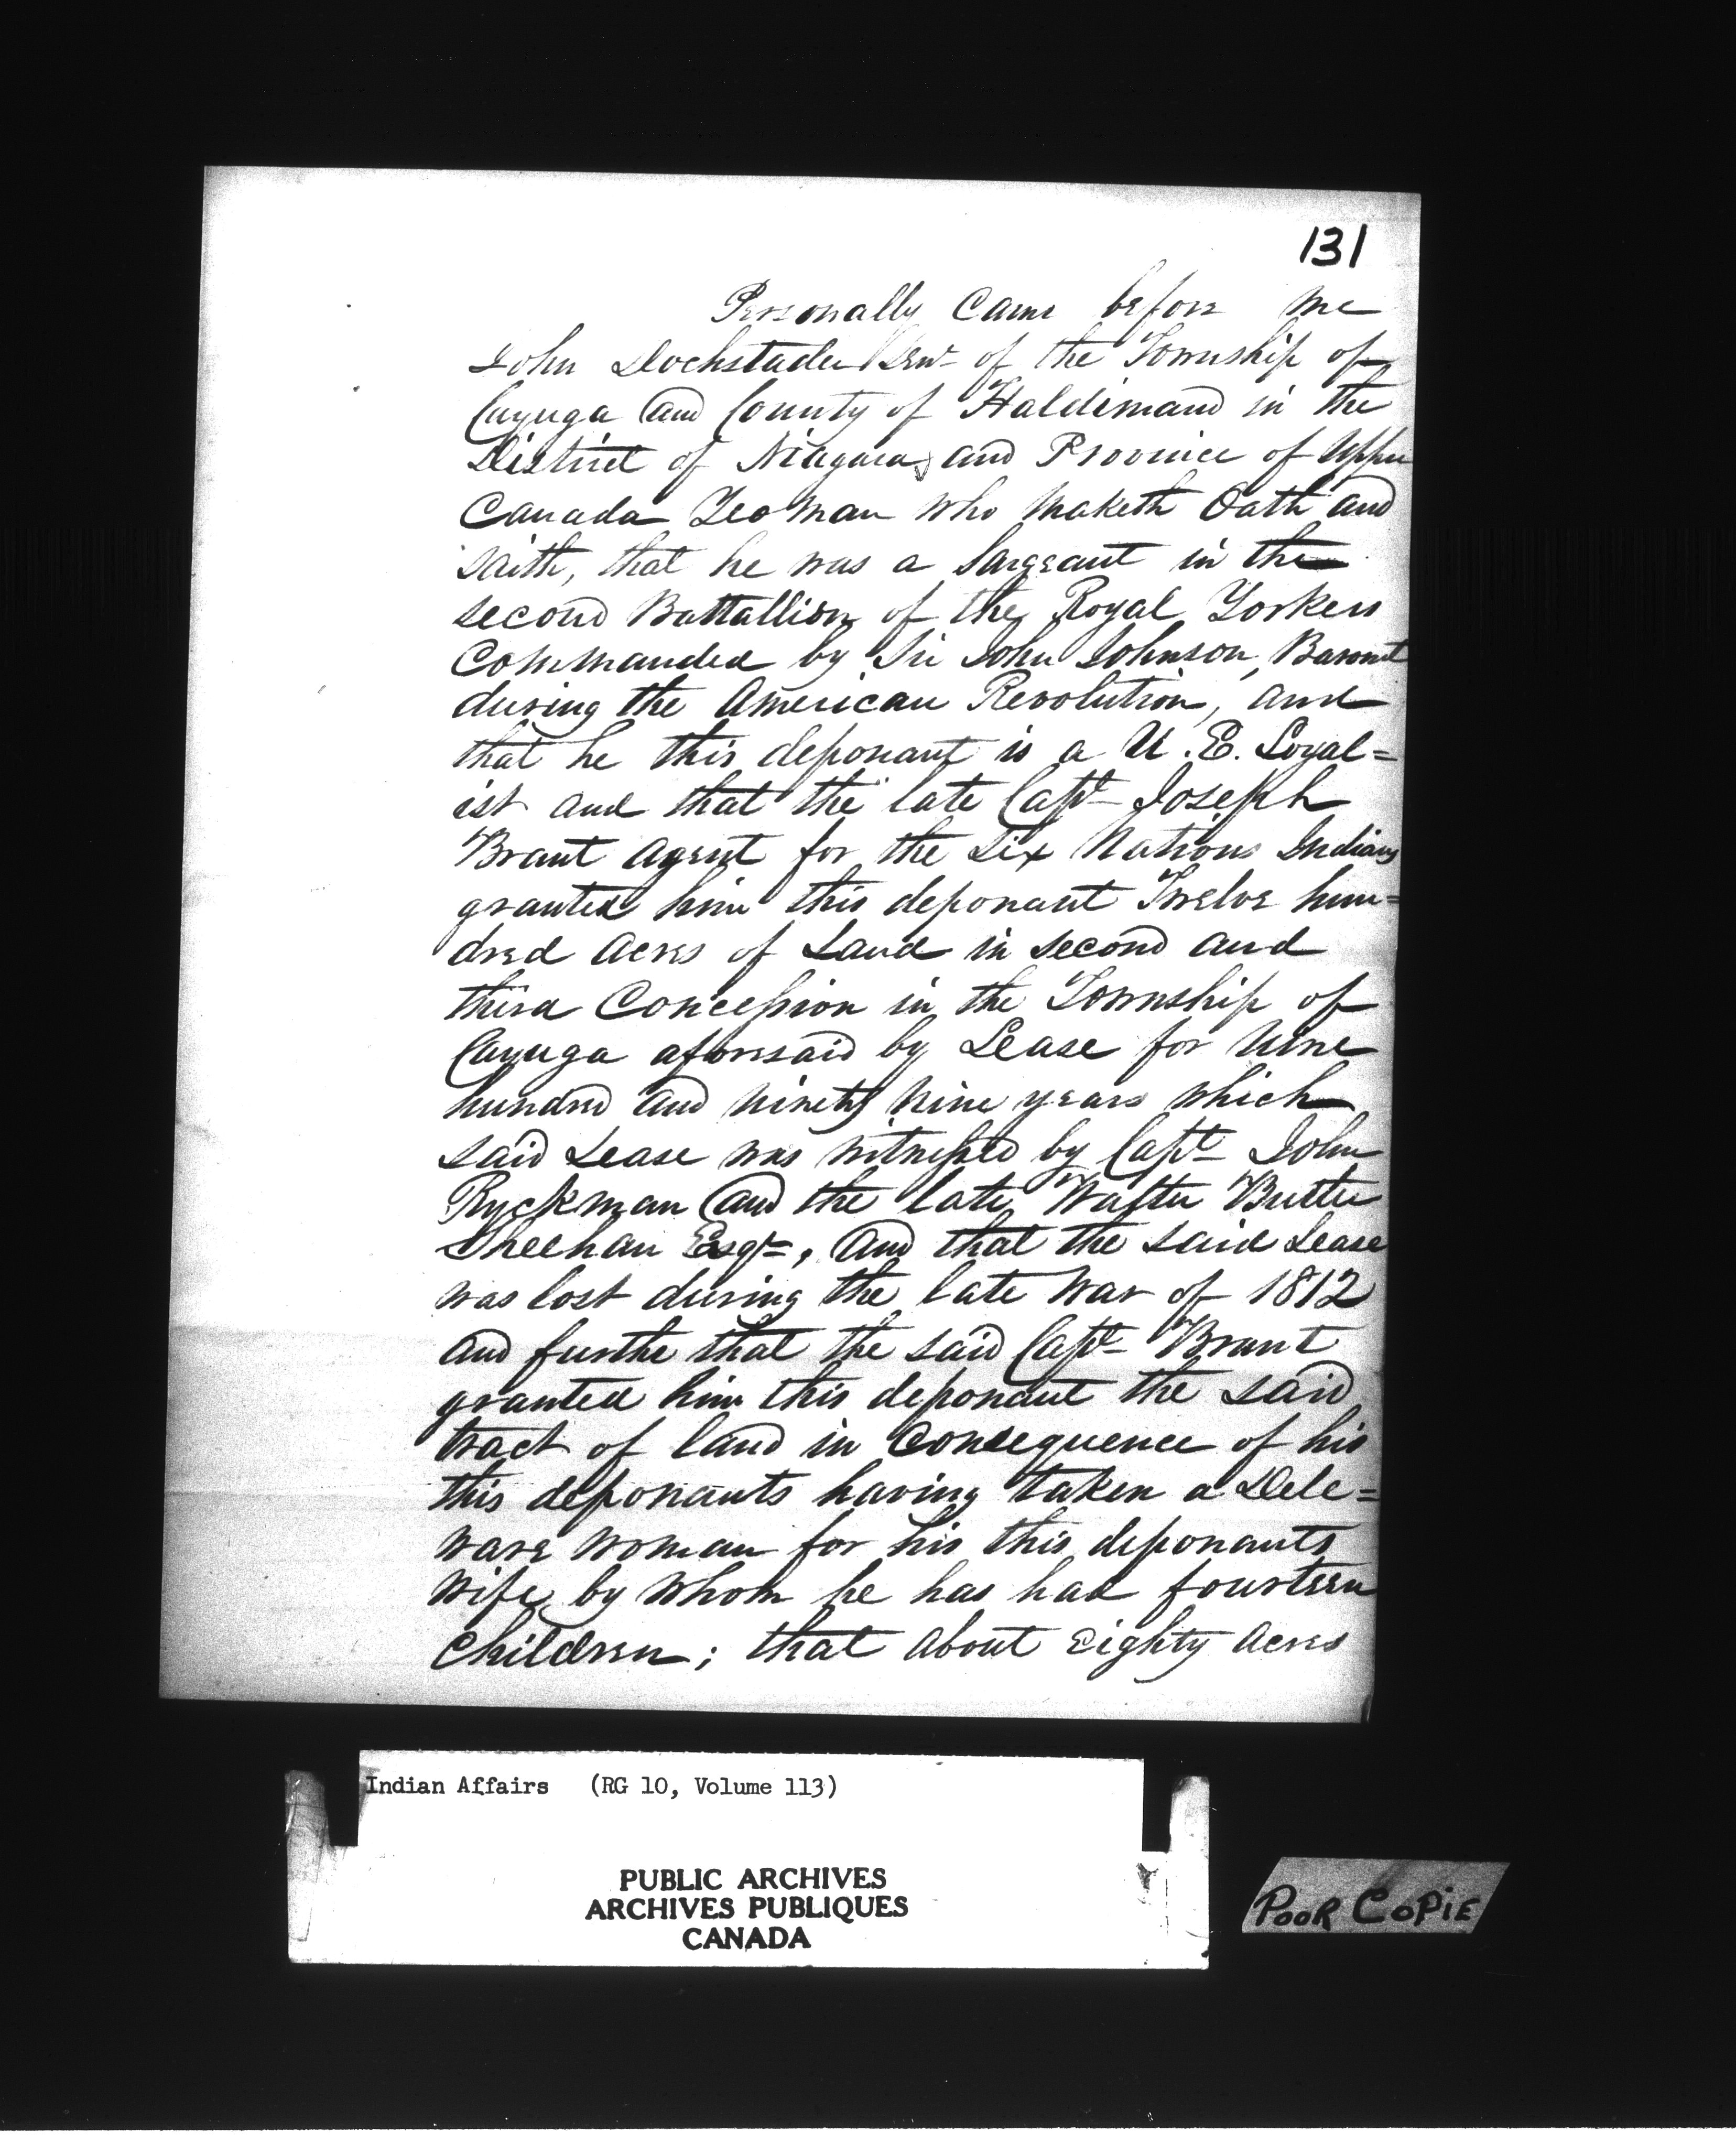 131
Personally Came before me
John Dochstader Senr of the Township of
Cayuga and County of Haldimand in the
District of Niagara and Province of Upper
Canada Yeoman who maketh Oath and
saith, that he was a Sargeant in the
second Battallion of the Royal Yorkers
Commanded by Sir John Johnson, Baronet
during the American Revolution, and
that he this deponant is a U. E. Loyal=
ist and that the late Capt Joseph
Brant Agent for the Six Nations Indians
granted him this deponant Twelve hun=
dred Acres of Land in second and
third Concession in the Township of
Cayuga aforesaid by Lease for Nine
hundred and Ninety Nine years which
said Lease was witnessed by Capt John
Ryckman and the late Walter Butler
Sheehan Esqr, And that the said Lease
was lost during the late War of 1812
and furthe that the said Capt Brant
granted him this deponant the said
tract of land in Consequence of his
this deponants having taken a Dele=
ware woman for his this deponants
Wife by whom he has had fourteen
Children; that about Eighty Acres
Indian Affairs (RG 10, Volume 113)
PUBLIC ARCHIVES
ARCHIVES PUBLIQUES
CANADA
POOR COPIE